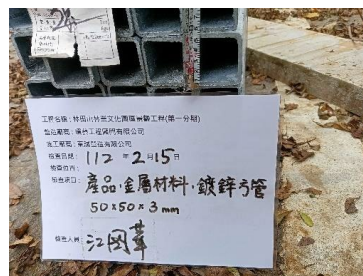 工程名稱：林田山林業文化園區景觀工程(第一分期)
監造廠商：
工程顧問有限公司
施工廠商：
營造有限公司
檢查日期：112 年 2 月 15 日
檢查位置：
檢查項目：產品,金屬材料,鍍鋅方管
50x50x3mm
檢查人員：江國華